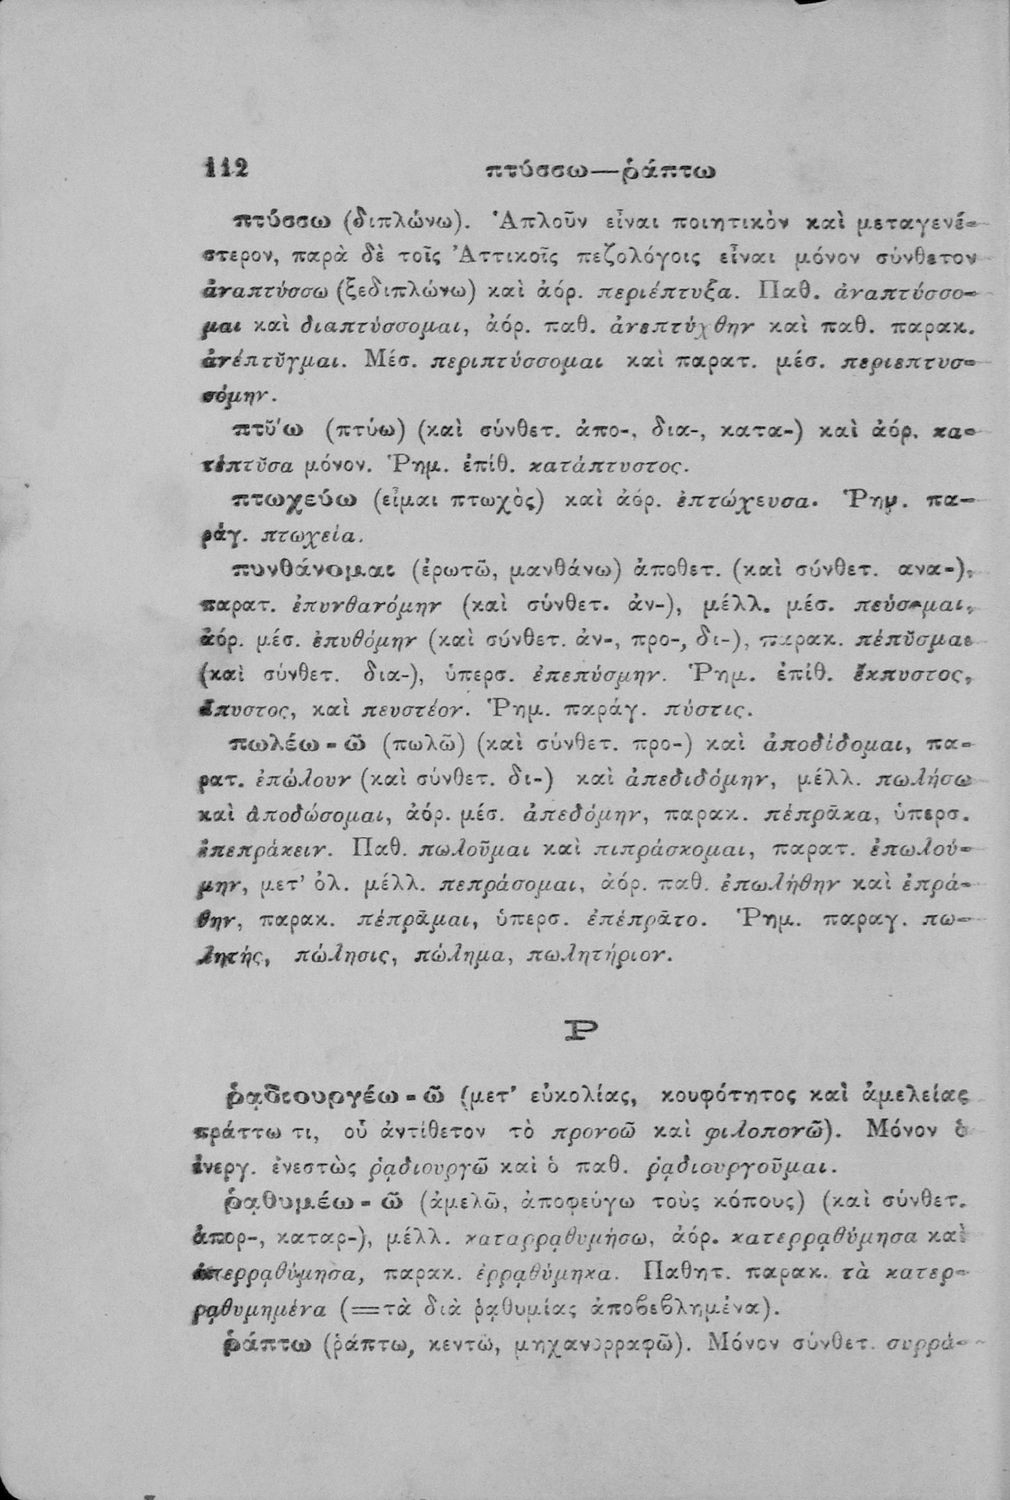 112 πτύσσω—ῥάπτω
πτύσσω (διπλώνω). Ἁπλοῦν εἶναι ποιητικὸν καὶ μεταγενέ-
στερον, παρὰ δὲ τοῖς Ἀττικοῖς πεζολόγοις εἶναι μόνον σύνθετον
ἀναπτύσσω (ξεδιπλώνω) καὶ ἀόρ. περιέπτυξα. Παθ. ἀναπτύσσο-
μαι καὶ διαπτύσσομαι, ἀόρ. παθ. ἀνεπτύχθην καὶ παθ. παρακ.
ἀνέπτῠγμαι. Μέσ. περιπτύσσομαι καὶ παρατ. μέσ. περιεπτυσ-
σόμην.
πτῠ́ω (πτύω) (καὶ σύνθετ. ἀπο-, δια-, κατα-) καὶ ἀόρ. κα-
τέπτῠσα μόνον. Ῥημ. ἐπίθ. κατάπτυστος.
πτωχεύω (εἶμαι πτωχὸς) καὶ ἀόρ. ἐπτώχευσα. Ῥημ. πα-
ράγ. πτωχεία.
πυνθάνομαι (ἐρωτῶ, μανθάνω) ἀποθετ. (καὶ σύνθετ. ανα-),
παρατ. ἐπυνθανόμην (καὶ σύνθετ. ἀν-), μέλλ. μέσ. πεύσομαι,
ἀόρ. μέσ. ἐπυθόμην (καὶ σύνθετ. ἀν-, προ-, δι-), παρακ. πέπῠσμαι
(καὶ σύνθετ. δια-), ὑπερσ. ἐπεπύσμην. Ῥημ. ἐπίθ. ἔκπυστος,
ἄπυστος, καὶ πευστέον. Ῥημ. παράγ. πύστις.
πωλέω-ῶ (πωλῶ) (καὶ σύνθετ. προ-) καὶ ἀποδίδομαι, πα-
ρατ. ἐπώλουν (καὶ σύνθετ. δι-) καὶ ἀπεδιδόμην, μέλλ. πωλήσω
καὶ ἀποδώσομαι, ἀόρ. μέσ. ἀπεδόμην, παρακ. πέπρᾱκα, ὑπερσ.
ἐπεπράκειν. Παθ. πωλοῦμαι καὶ πιπράσκομαι, παρατ. ἐπωλού-
μην, μετ’ ὀλ. μέλλ. πεπράσομαι, ἀόρ. παθ. ἐπωλήθην καὶ ἐπρά-
θην, παρακ. πέπρᾱμαι, ὑπερσ. ἐπέπρᾱτο. Ῥημ. παραγ. πω-
λητής, πώλησις, πώλημα, πωλητήριον.
Ρ
ῥᾳδιουργέω-ῶ (μετ’ εὐκολίας, κουφότητος καὶ ἀμελείας
πράττω τι, οὗ ἀντίθετον τὸ προνοῶ καὶ φιλοπονῶ). Μόνον ὁ
ἐνεργ. ἐνεστὼς ῥᾳδιουργῶ καὶ ὁ παθ. ῥᾳδιουργοῦμαι.
ῥᾳθυμέω-ῶ (ἀμελῶ, ἀποφεύγω τοὺς κόπους) (καὶ σύνθετ.
ἀπορ-, καταρ-), μέλλ. καταρρᾳθυμήσω, ἀόρ. κατερρᾳθύμησα καὶ
ἀπερρᾳθύμησα, παρακ. ἐρρᾳθύμηκα. Παθητ. παρακ. τὰ κατερ-
ρᾳθυμημένα (=τὰ διὰ ῥᾳθυμίας ἀποβεβλημένα).
ῥάπτω (ῥάπτω, κεντῶ, μηχανορραφῶ). Μόνον σύνθετ. συρρά-